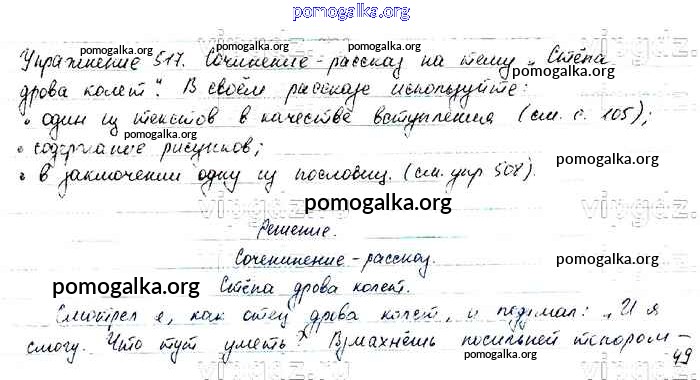 pomogalka.org
Упражнение 517. Сочинение-рассказ на тему „Стёпа
pomogalka.org pomogalka.org pomogalka.org
дрова колет". В своём рассказе используйте:
pomogalka.org
• один из текстов в качестве вступления (см. с. 105);
• содержание рисунков;
pomogalka.org
• в заключении одну из пословиц. (см. упр 508).
pomogalka.org
Решение.
Соченинение-рассказ.
pomogalka.org pomogalka.org
Стёпа дрова колет.
Смотрел я, как отец дрова колет, и подумал: „И я
pomogalka.org pomogalka.org
смогу. Что тут уметь? Взмахнёшь посильней топором –
49